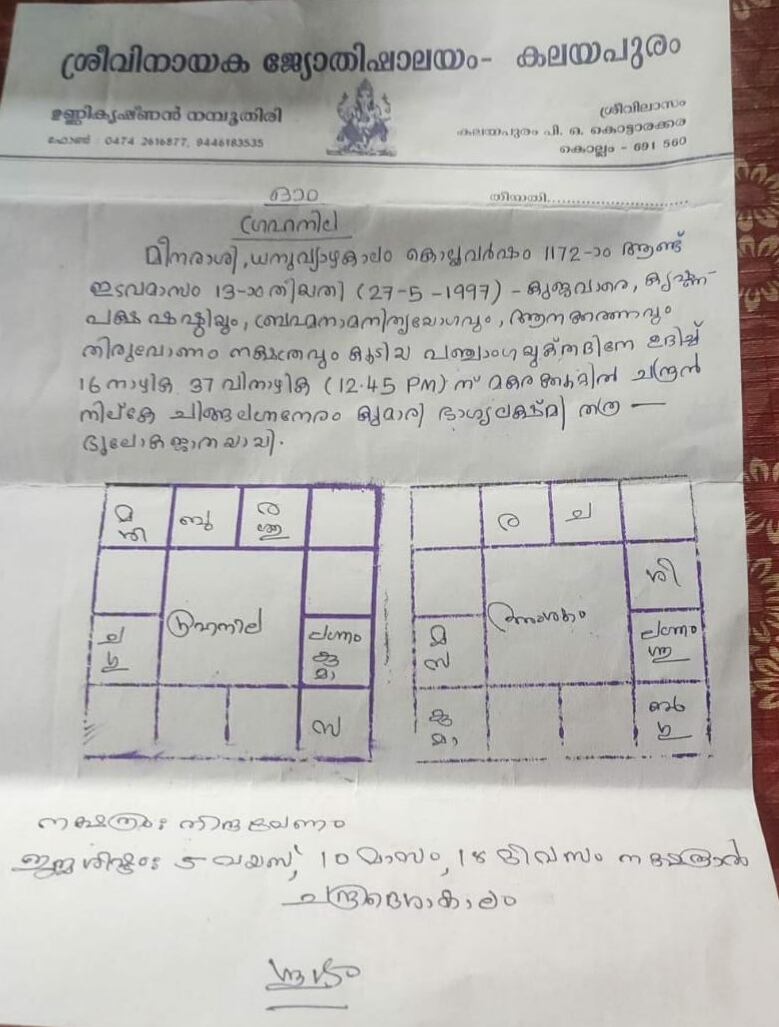 ശ്രീവിനായക ജ്യോതിഷാലയം- കലയപുരം
ഉണ്ണികൃഷ്ണൻ നമ്പൂതിരി
ഫോൺ : 0474 2616877, 9446183535
ശ്രീവിലാസം
കലയപുരം പി. ഒ. കൊട്ടാരക്കര
കൊല്ലം - 691 560
തീയതി
ഗ്രഹനില
മീനരാശി, ധനുവ്യാഴകാലം കൊല്ലവർഷം 1172-ാം ആണ്ട്
ഇടവമാസം 13-ാം തീയതി (27-5-1997) - കുജവാരെ, കൃഷ്ണ-
പക്ഷ ഷഷ്ഠിയും, ബ്രഹ്മനാമനിത്യയോഗവും,
തിരുവോണം നക്ഷത്രവും കൂടിയ പഞ്ചാംഗയുക്തദിനേ ഉദിച്ച്
16 നാഴിക 37 വിനാഴിക (12.45 PM) ന് മകരക്കൂറിൽ ചന്ദ്രൻ
നില്ക്കേ ചിങ്ങലഗ്നനേരം കുമാരി ഭാഗ്യലക്ഷ്മി തത്ര —
ഭൂലോകജാതയായി.
മ
ശി
ബു
ര
ശു
ച
ഗു
ഗ്രഹനില
ലഗ്നം
കു
മാ
സ
ര
ച
ശി
മ
സ
അംശകം
ലഗ്നം
ശു
കു
മാ
ബു
ഗു
നക്ഷത്രം: തിരുവോണം
5 വയസ്സ്, 10 മാസം, 18 ദിവസം നക്ഷത്രാൽ
ചന്ദ്രദശാകാലം
ശുഭം